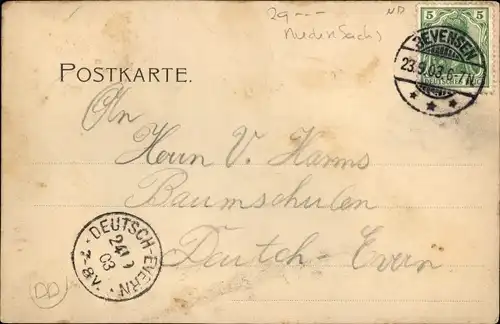 29---
ND
Niedersachs
5 5
BEVENSEN
23.9.03.6-7N
POSTKARTE.
An
Herrn V. Harms
Baumschulen
Deutsch-Evern
DEUTSCH-EVERN
24/9
03
7-8V
DD